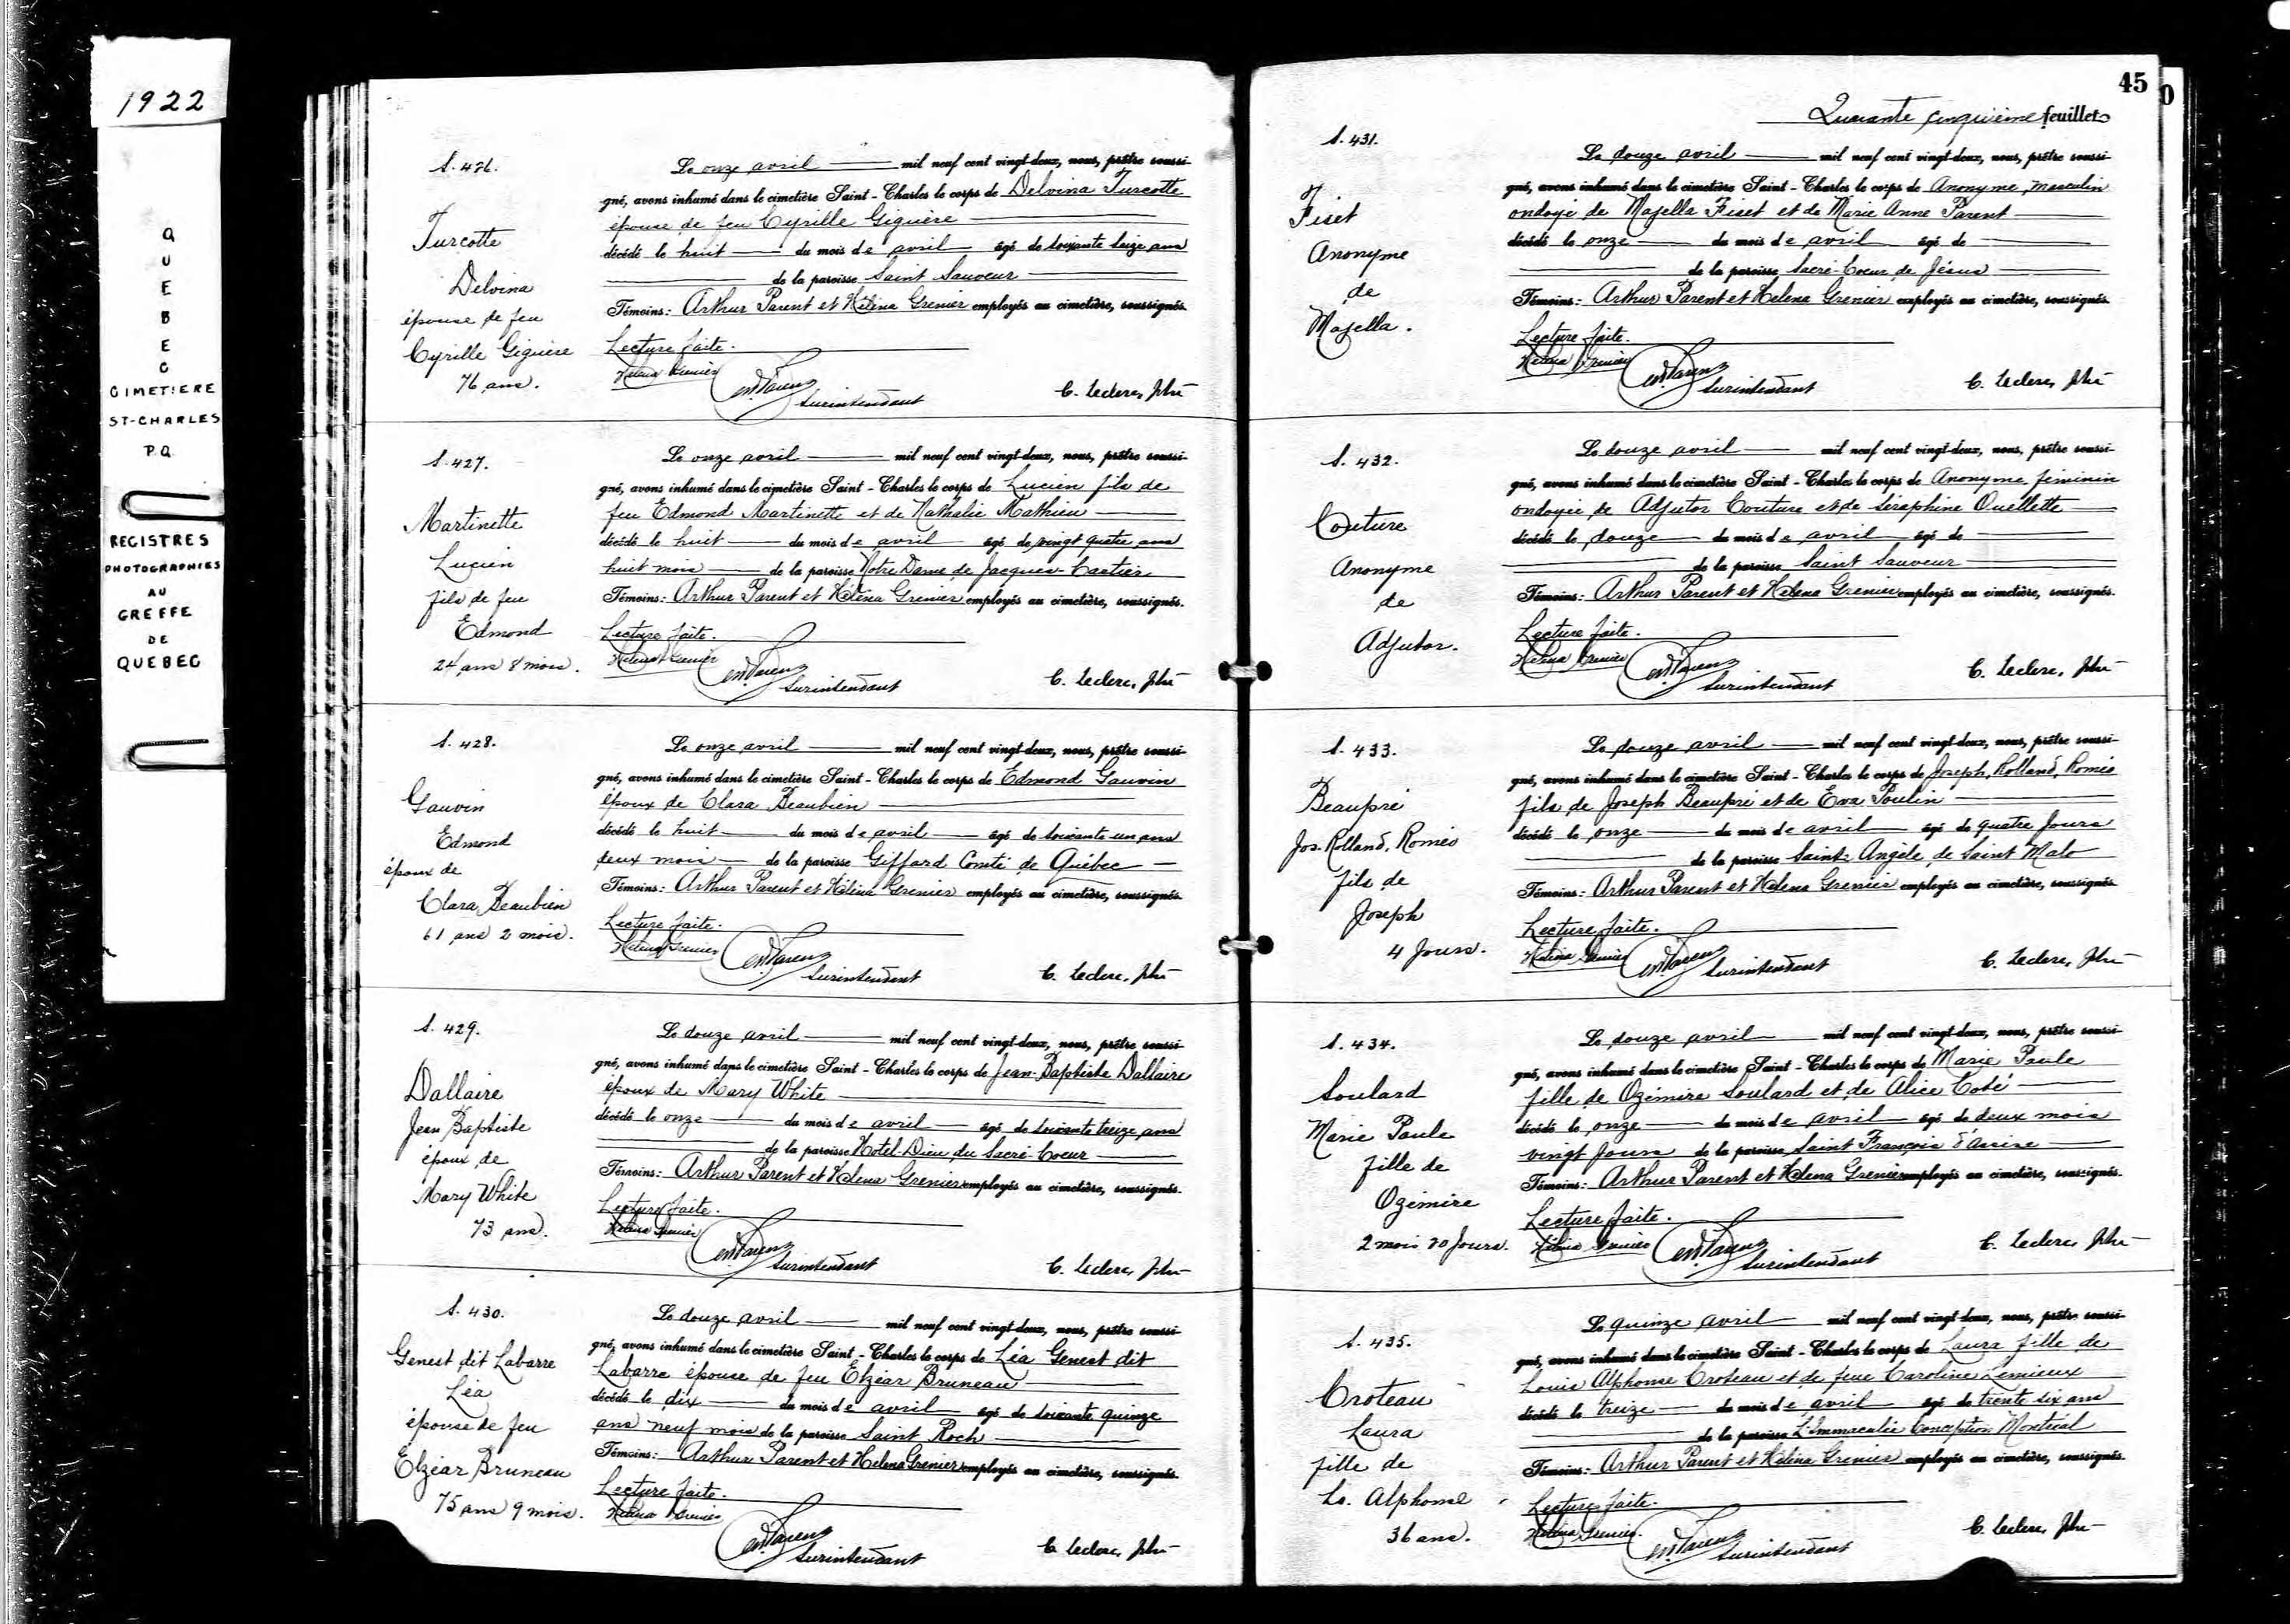 1922
QUEBEC
CIMETIERE
ST-CHARLES
P.Q.
REGISTRES
PHOTOGRAPHIES
AU
GREFFE
DE
QUEBEC
S. 426.
Turcotte
Delvina
épouse de feu
Cyrille Giguère
76 ans.
Le onze avril mil neuf cent vingt-deux, nous, prêtre soussi-
gné, avons inhumé dans le cimetière Saint-Charles le corps de Delvina Turcotte
épouse de feu Cyrille Giguère
décédé le huit du mois de avril âgé de soixante seize ans
de la paroisse Saint Sauveur
Témoins: Arthur Parent et Héléna Grenier employés au cimetière, soussignés.
Lecture faite.
Héléna Grenier
Surintendant
C. Leclerc, ptre
S. 427.
Martinette
Lucien
fils de feu
Edmond
24 ans 8 mois.
Le onze avril mil neuf cent vingt-deux, nous, prêtre soussi-
gné, avons inhumé dans le cimetière Saint-Charles le corps de Lucien fils de
feu Edmond Martinette et de Nathalie Mathieu
décédé le huit du mois de avril âgé de vingt quatre ans
huit mois de la paroisse Notre Dame de Jacques-Cartier
Témoins: Arthur Parent et Héléna Grenier employés au cimetière, soussignés.
Lecture faite.
Héléna Grenier
Surintendant
C. Leclerc, ptre
S. 428.
Gauvin
Edmond
époux de
Clara Beaubien
61 ans 2 mois.
Le onze avril mil neuf cent vingt-deux, nous, prêtre soussi-
gné, avons inhumé dans le cimetière Saint-Charles le corps de Edmond Gauvin
époux de Clara Beaubien
décédé le huit du mois de avril âgé de soixante un ans
deux mois de la paroisse Giffard Comté de Québec
Témoins: Arthur Parent et Héléna Grenier employés au cimetière, soussignés.
Lecture faite.
Héléna Grenier
Surintendant
C. Leclerc, ptre
S. 429.
Dallaire
Jean Baptiste
époux de
Mary White
73 ans.
Le douze avril mil neuf cent vingt-deux, nous, prêtre soussi-
gné, avons inhumé dans le cimetière Saint-Charles le corps de Jean-Baptiste Dallaire
époux de Mary White
décédé le onze du mois de avril âgé de soixante treize ans
de la paroisse Hotel-Dieu du Sacré-Coeur
Témoins: Arthur Parent et Héléna Grenier employés au cimetière, soussignés.
Lecture faite.
Héléna Grenier
Surintendant
C. Leclerc, ptre
S. 430.
Genest dit Labarre
Léa
épouse de feu
Elzéar Bruneau
75 ans 9 mois.
Le douze avril mil neuf cent vingt-deux, nous, prêtre soussi-
gné, avons inhumé dans le cimetière Saint-Charles le corps de Léa Genest dit
Labarre épouse de feu Elzéar Bruneau
décédé le dix du mois de avril âgé de soixante quinze
ans neuf mois de la paroisse Saint Roch
Témoins: Arthur Parent et Helena Grenier employés au cimetière, soussignés.
Lecture faite.
Héléna Grenier
Surintendant
C. Leclerc, ptre
45
Quarante cinquième feuillet
S. 431.
Fiset
Anonyme
de
Majella.
Le douze avril mil neuf cent vingt-deux, nous, prêtre soussi-
gné, avons inhumé dans le cimetière Saint-Charles le corps de Anonyme, masculin
ondoyé de Majella Fiset et de Marie Anne Parent
décédé le onze du mois de avril âgé de
de la paroisse Sacré-Coeur de Jésus
Témoins: Arthur Parent et Helena Grenier employés au cimetière, soussignés.
Lecture faite.
Héléna Grenier
Surintendant
C. Leclerc, ptre
S. 432.
Couture
Anonyme
de
Adjutor.
Le douze avril mil neuf cent vingt-deux, nous, prêtre soussi-
gné, avons inhumé dans le cimetière Saint-Charles le corps de Anonyme féminin
ondoyée de Adjutor Couture et de Séraphine Ouellette
décédé le douze du mois de avril âgé de
de la paroisse Saint Sauveur
Témoins: Arthur Parent et Helena Grenier employés au cimetière, soussignés.
Lecture faite.
Héléna Grenier
Surintendant
C. Leclerc, ptre
S. 433.
Beaupré
Jos. Rolland, Roméo
fils de
Joseph
4 Jours.
Le douze avril mil neuf cent vingt-deux, nous, prêtre soussi-
gné, avons inhumé dans le cimetière Saint-Charles le corps de Joseph, Rolland, Roméo
fils de Joseph Beaupré et de Eva Poulin
décédé le onze du mois de avril âgé de quatre Jours
de la paroisse Saint-Angèle de Saint Malo
Témoins: Arthur Parent et Helena Grenier employés au cimetière, soussignés.
Lecture faite.
Héléna Grenier
Surintendant
C. Leclerc, ptre
S. 434.
Soulard
Marie Paule
fille de
Ozémire
2 mois 20 Jours.
Le douze avril mil neuf cent vingt-deux, nous, prêtre soussi-
gné, avons inhumé dans le cimetière Saint-Charles le corps de Marie Paule
fille de Ozémire Soulard et de Alice Coté
décédé le onze du mois de avril âgé de deux mois
vingt Jours de la paroisse Saint François d'Assise
Témoins: Arthur Parent et Helena Grenier employés au cimetière, soussignés.
Lecture faite.
Héléna Grenier
Surintendant
C. Leclerc, ptre
S. 435.
Croteau
Laura
fille de
Ls. Alphonse
36 ans.
Le quinze avril mil neuf cent vingt-deux, nous, prêtre soussi-
gné, avons inhumé dans le cimetière Saint-Charles le corps de Laura fille de
Louis Alphonse Croteau et de feue Caroline Lemieux
décédé le treize du mois de avril âgé de trente six ans
de la paroisse L'Immaculée Conception Montréal
Témoins: Arthur Parent et Héléna Grenier employés au cimetière, soussignés.
Lecture faite.
Héléna Grenier.
Surintendant
C. Leclerc, ptre